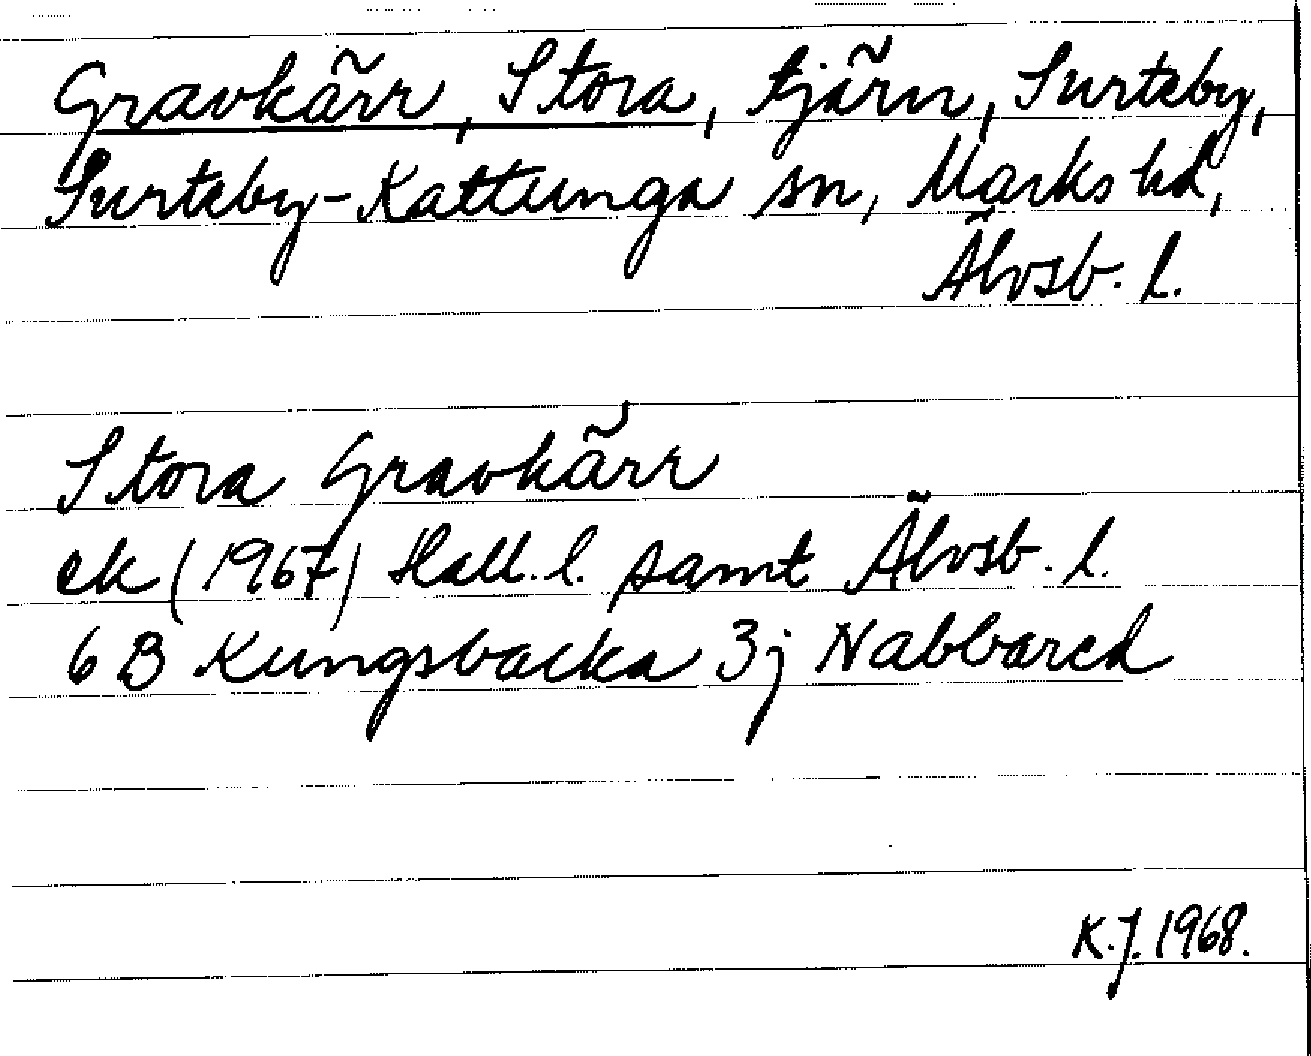 Gravkärr, Stora, tjärn, Surteby,
Surteby-Kattunga sn, Marks hd,
Älvsb. l.
Stora Gravkärr
ek (1967) Hall. l. samt Älvsb. l.
6 B Kungsbacka 3j Nabbared
K.J. 1968.